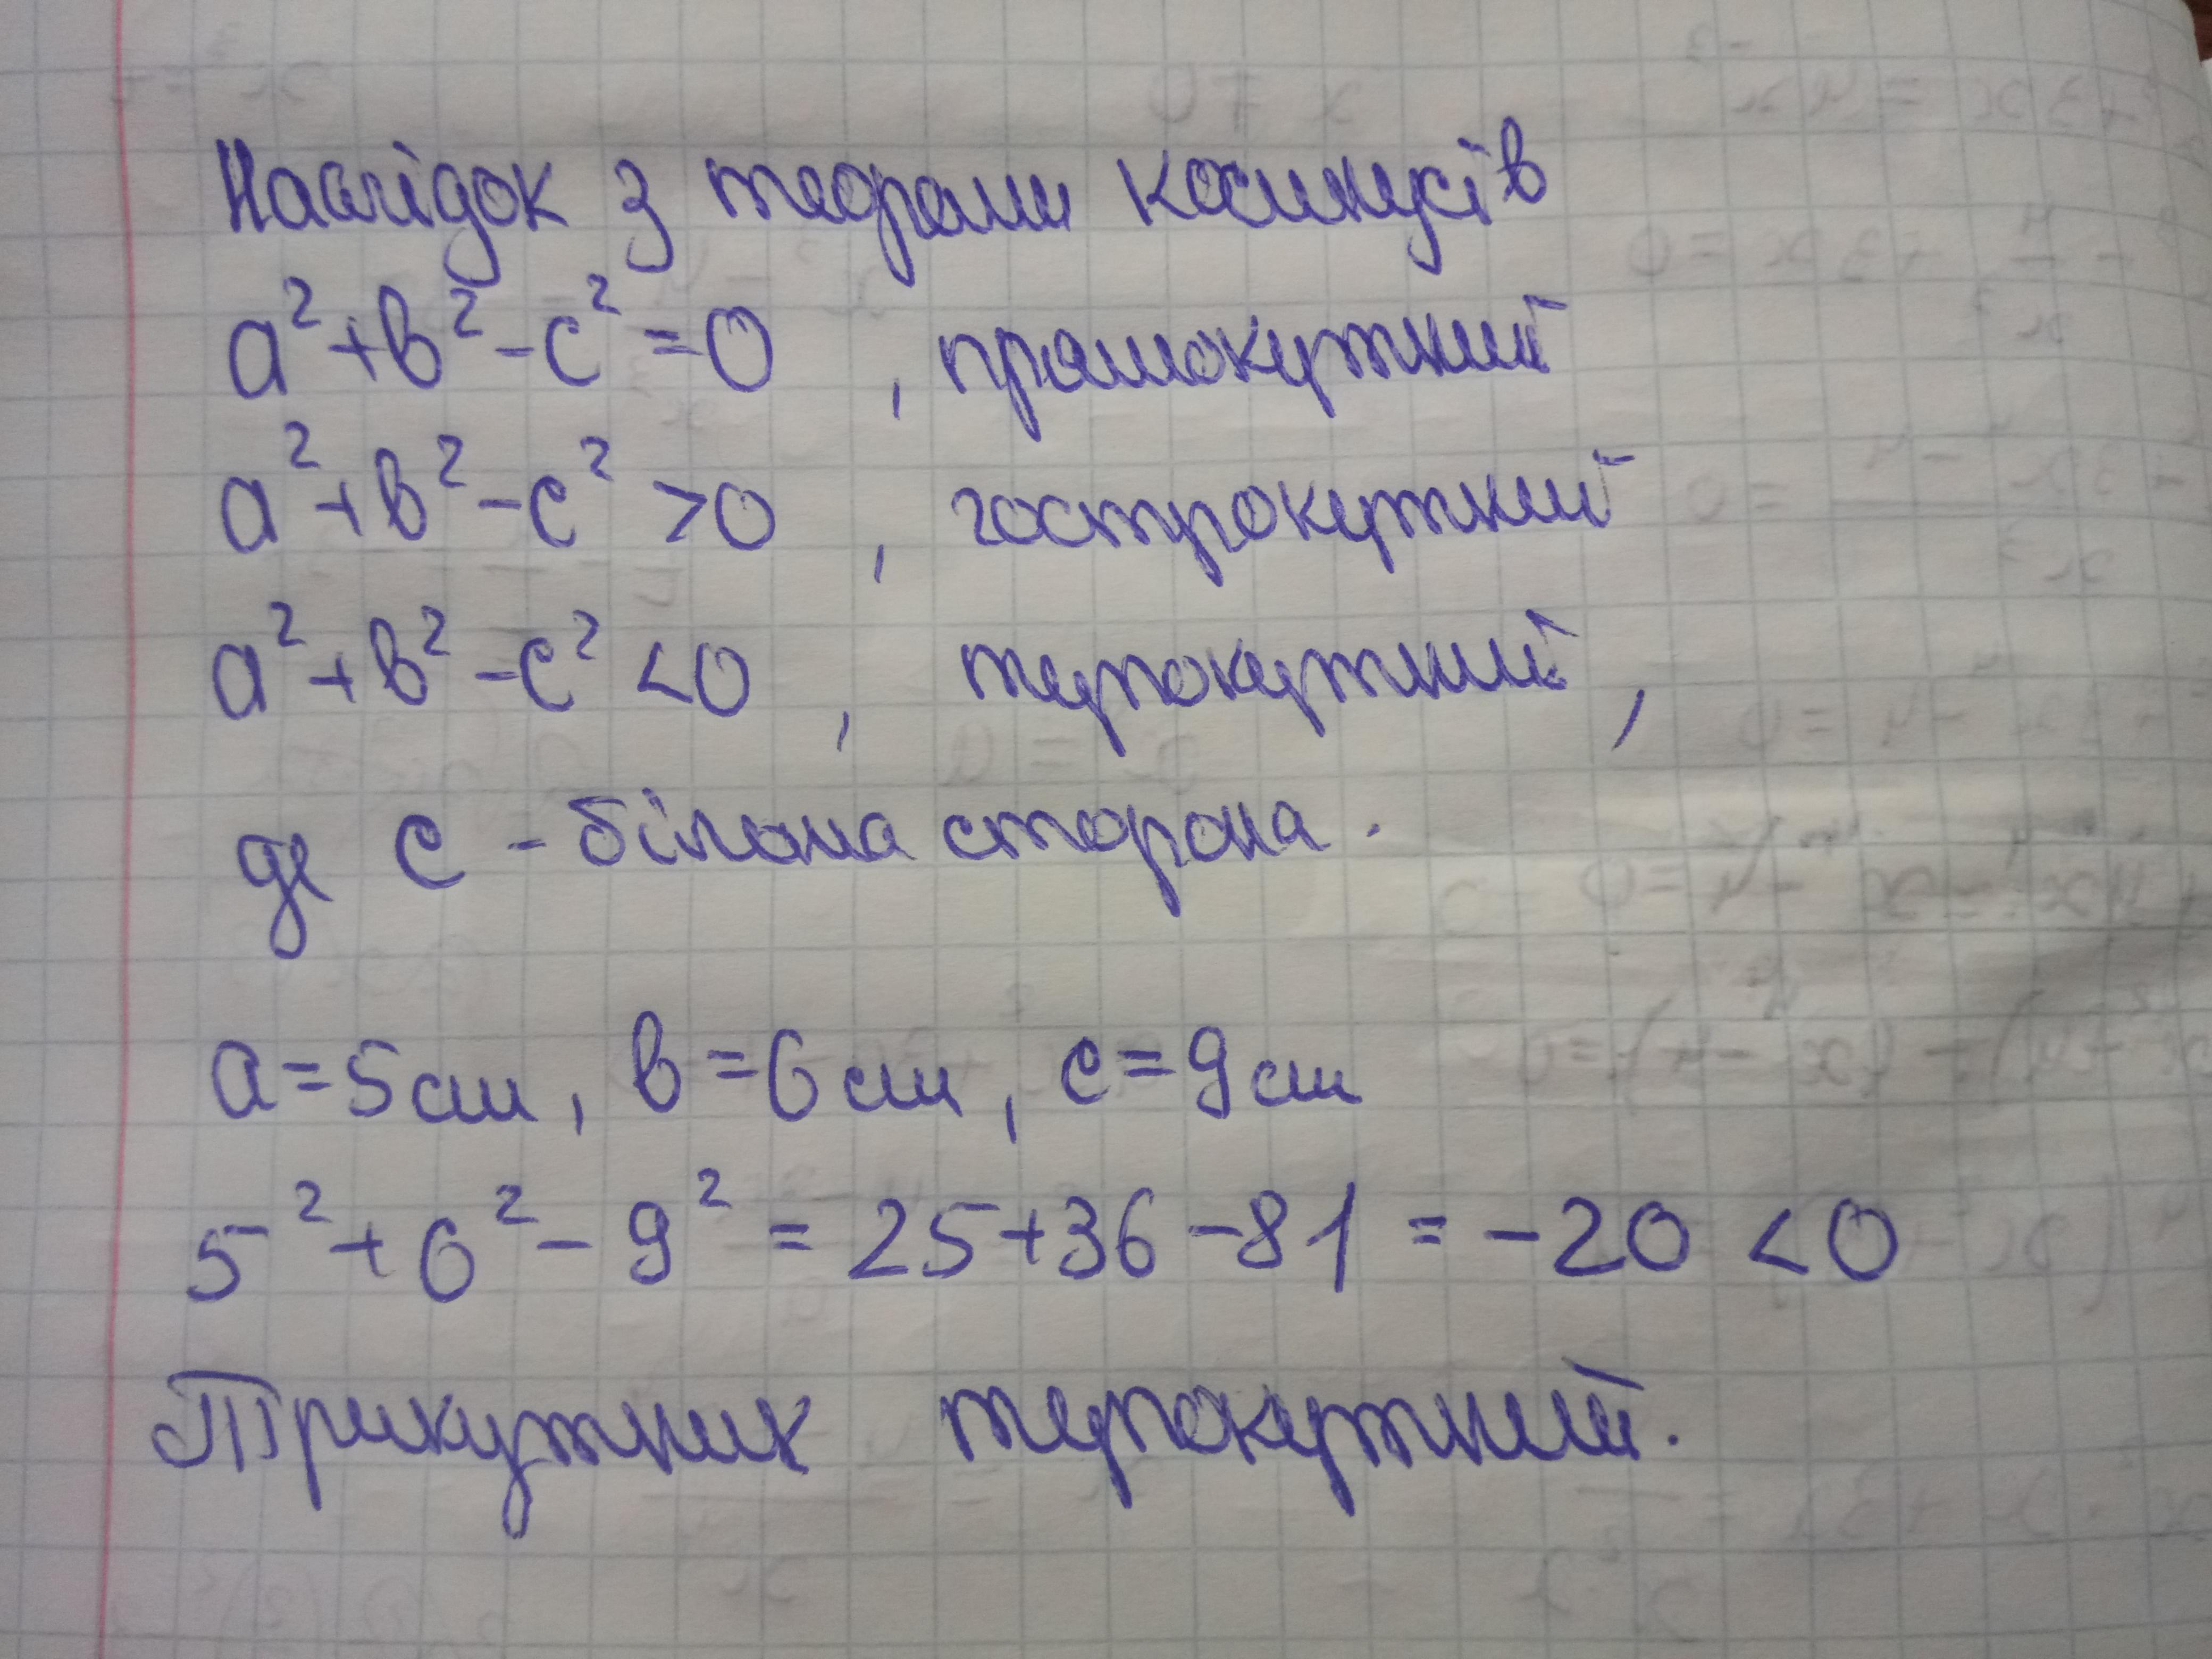 Наслідок з теореми косинусів
a²+b²-c²=0 , прямокутний
a²+b²-c² >0 , гострокутний
a²+b²-c² <0 , тупокутний,
де c - більша сторона.
a=5см, b=6см, c=9см
5²+6²-9² = 25+36-81 = -20 <0
Трикутник тупокутний.